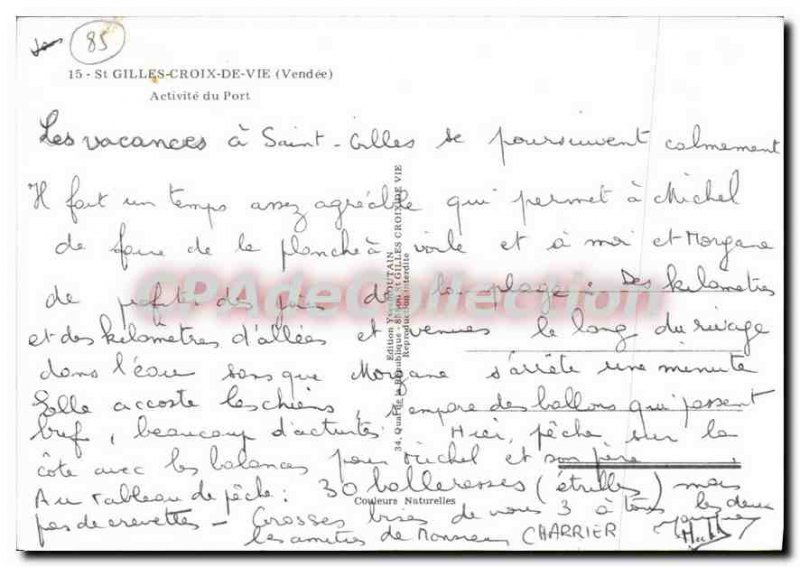 85
15 - St GILLES-CROIX-DE-VIE (Vendée)
Activité du Port
Les vacances à Saint-Gilles se poursuivent calmement
Il fait un temps assez agréable qui permet à Michel
de faire de la planche à voile et à moi et Morgane
de profiter des joies de la plage : Des kilomètres
et des kilomètres d'allées et venues le long du rivage
dans l'eau sans que Morgane s'arrête une minute
Elle accoste les chiens, s'empare des ballons qui passent
bref, beaucoup d'activités Hier, pêche sur la
côte avec les balances pour Michel et son père.
Au tableau de pêche : 30 balleresses (étrilles) mais
pas de crevettes - Grosses bises de nous 3 à tous les deux
les amitiés de Monsieur CHARRIER
Edition Yvan BOUTAIN
34, Quai de la République - St GILLES CROIX DE VIE
Reproduction interdite
Couleurs Naturelles
CPAdeCollection